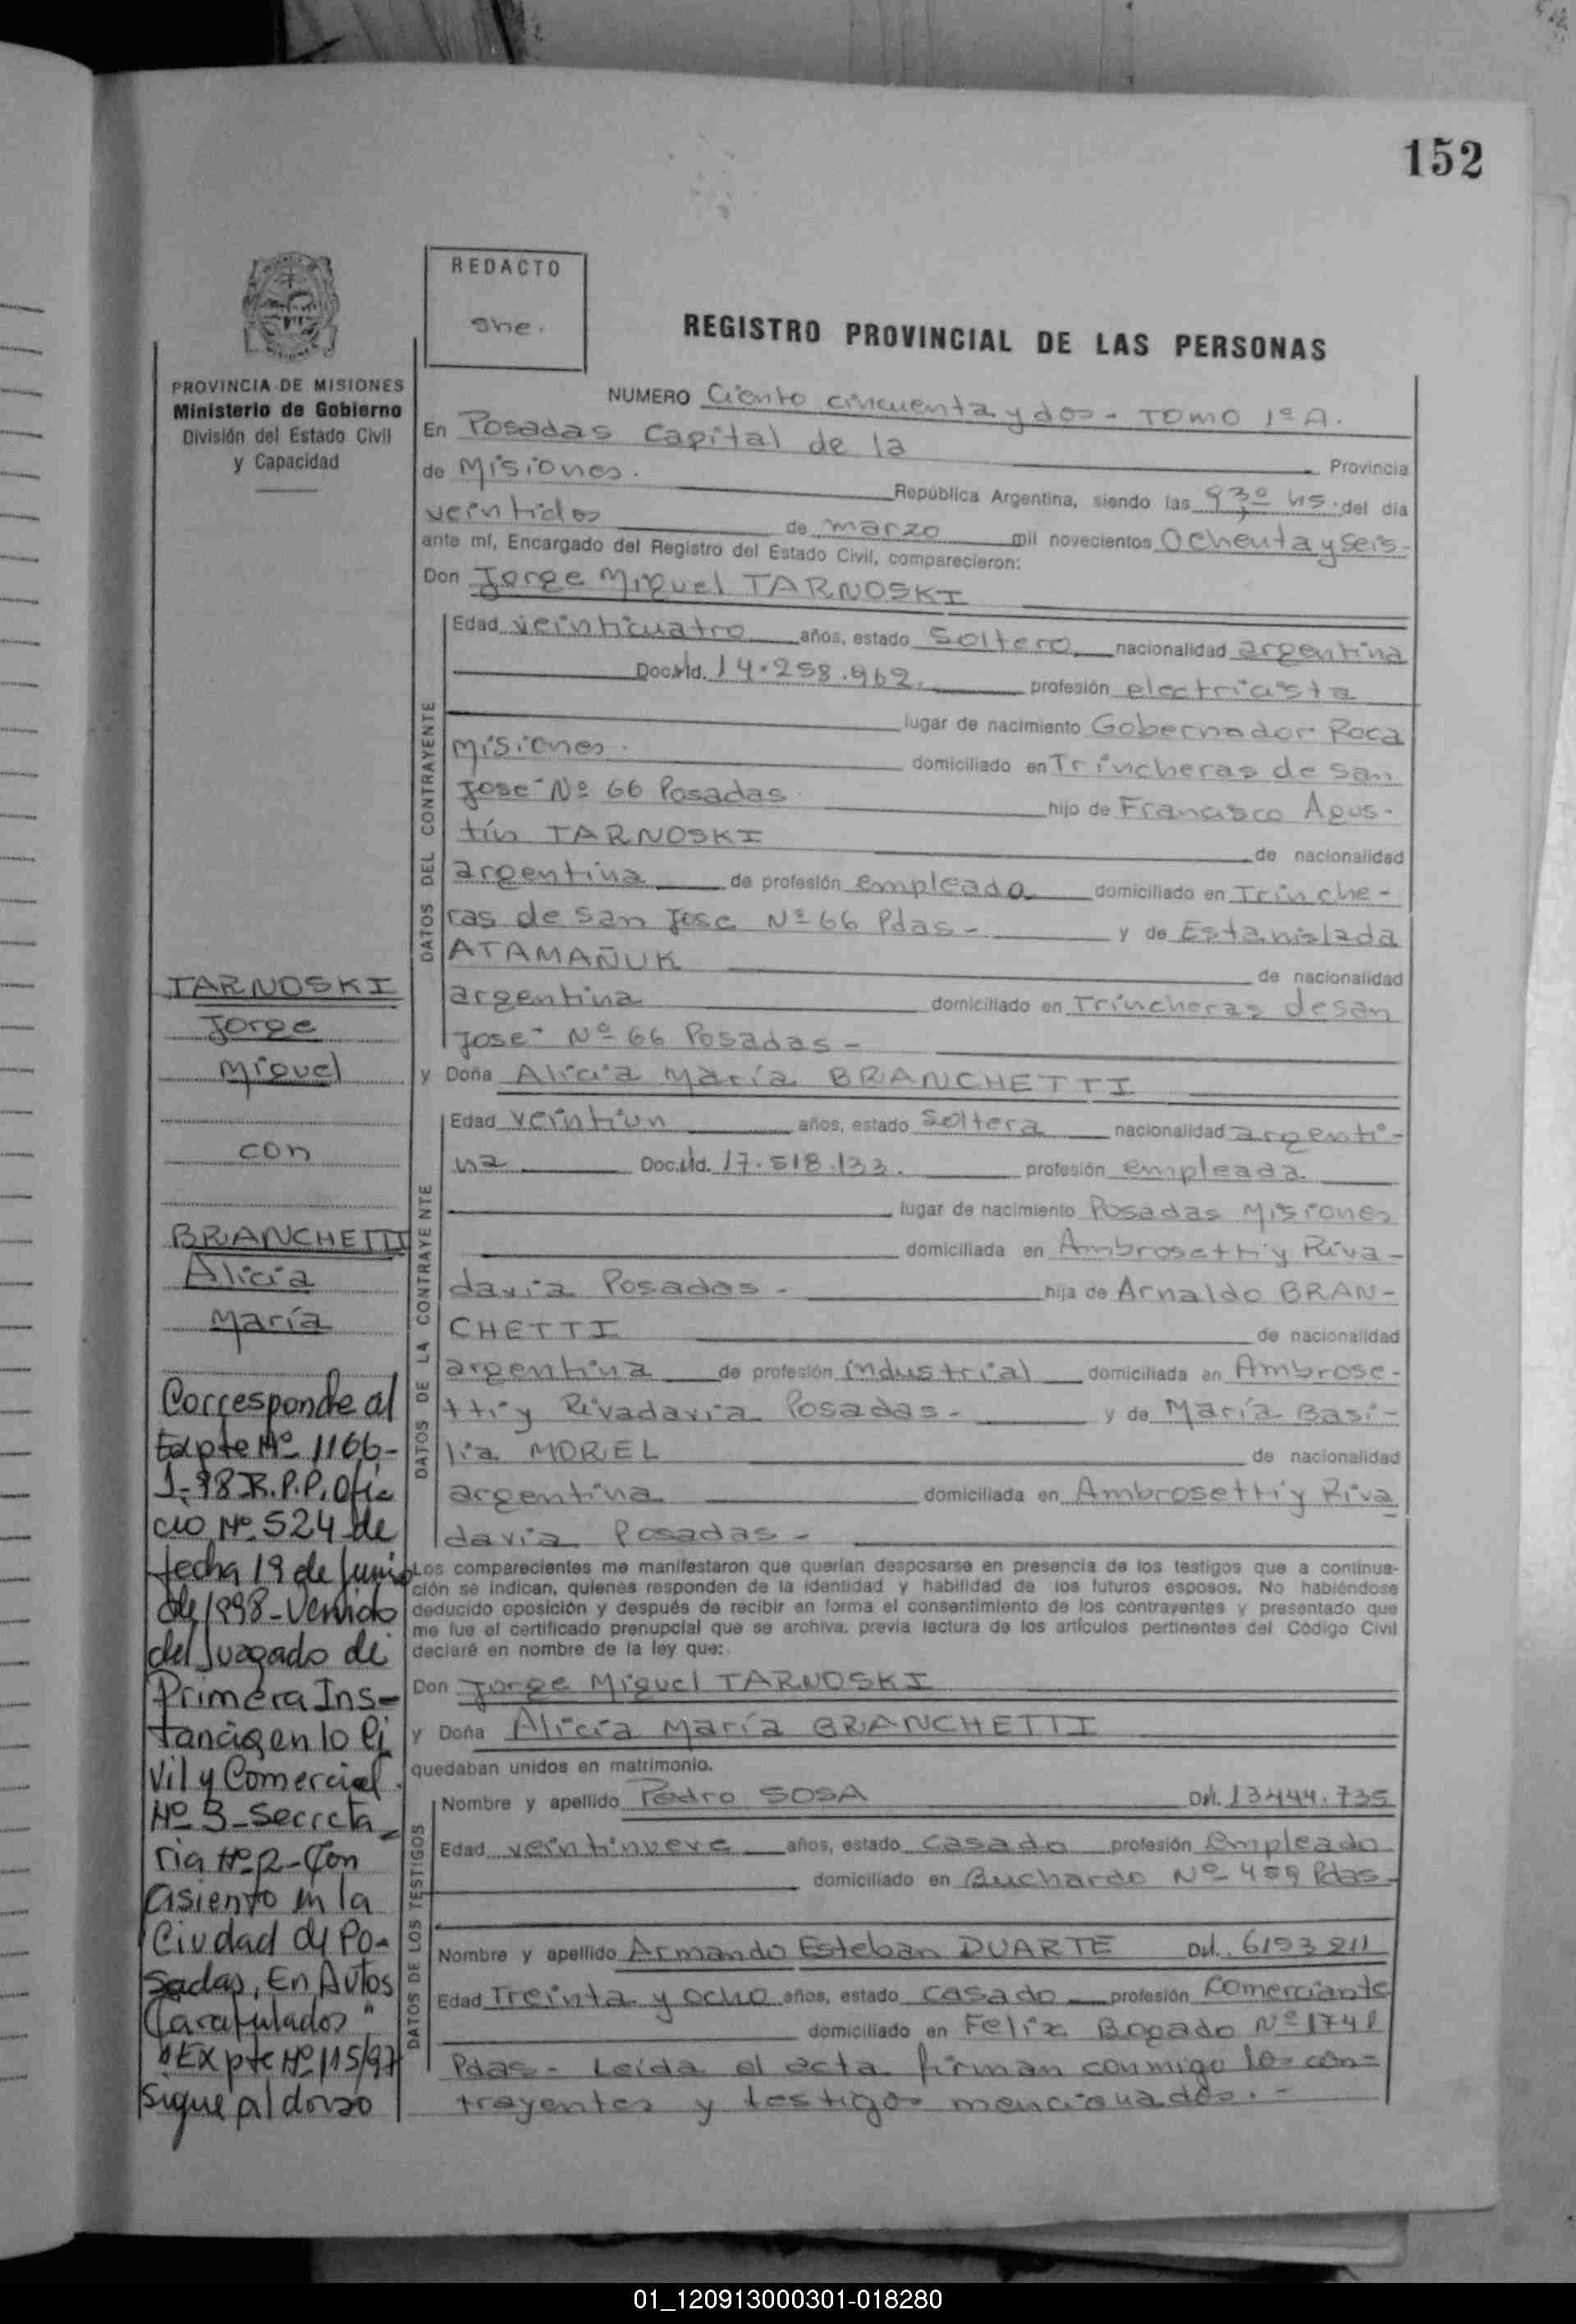 152
REDACTO
She.
REGISTRO PROVINCIAL DE LAS PERSONAS
PROVINCIA DE MISIONES
Ministerio de Gobierno
División del Estado Civil
y Capacidad
NUMERO Ciento cincuenta y dos - TOMO 1º A.
En Posadas Capital de la Provincia
de Misiones. República Argentina, siendo las 9,30 hs. del día
veintidos de marzo mil novecientos Ochenta y seis-
ante mí, Encargado del Registro del Estado Civil, comparecieron:
Don Jorge Miguel TARNOSKI
DATOS DEL CONTRAYENTE
Edad veinticuatro años, estado Soltero nacionalidad argentina
Doc. Id. 14.258.962. profesión electricista
lugar de nacimiento Gobernador Roca
Misiones. domiciliado en Trincheras de San
José Nº 66 Posadas hijo de Francisco Agus-
tín TARNOSKI de nacionalidad
argentina de profesión empleado domiciliado en Trinche-
ras de San José Nº 66 Pdas- y de Estanislada
ATAMAÑUK de nacionalidad
argentina domiciliado en Trincheras de San
José Nº 66 Posadas-
y Doña Alicia María BRANCHETTI
DATOS DE LA CONTRAYENTE
Edad veintiun años, estado Soltera nacionalidad argenti-
na Doc. Id. 17.518.133. profesión empleada
lugar de nacimiento Posadas Misiones
domiciliada en Ambrosetti y Riva-
davia Posadas- hija de Arnaldo BRAN-
CHETTI de nacionalidad
argentina de profesión industrial domiciliada en Ambrose-
tti y Rivadavia Posadas- y de María Basi-
lia MORIEL de nacionalidad
argentina domiciliada en Ambrosetti y Riva
davia Posadas-
Los comparecientes me manifestaron que querían desposarse en presencia de los testigos que a continua-
ción se indican, quienes responden de la identidad y habilidad de los futuros esposos. No habiéndose
deducido oposición y después de recibir en forma el consentimiento de los contrayentes y presentado que
me fue el certificado prenupcial que se archiva, previa lectura de los artículos pertinentes del Código Civil
declaré en nombre de la ley que:
Don Jorge Miguel TARNOSKI
y Doña Alicia María BRANCHETTI
quedaban unidos en matrimonio.
DATOS DE LOS TESTIGOS
Nombre y apellido Pedro SOSA 13.444.735
Edad veintinueve años, estado casado profesión empleado
domiciliado en Buchardo Nº 459 Pdas-
Nombre y apellido Armando Esteban DUARTE 6193211
Edad Treinta y ocho años, estado casado profesión comerciante
domiciliado en Felix Bogado Nº 1741
Pdas- Leída el acta firman conmigo los con-
trayentes y testigos mencionados.-
TARNOSKI
Jorge
Miguel
con
BRANCHETTI
Alicia
María
Corresponde al
Expte Nº 1166-
J-98 R.P.P. Ofi
cio Nº 524 de
fecha 19 de Junio
de 1998-Venido
del Juzgado de
Primera Ins-
tancia en lo Ci
vil y Comercial
Nº 3-Secreta
ria Nº 2-Con
asiento en la
Ciudad de Po-
sadas, En Autos
Caratulados"
Expte Nº 115/97
Sigue al dorso
01_120913000301-018280